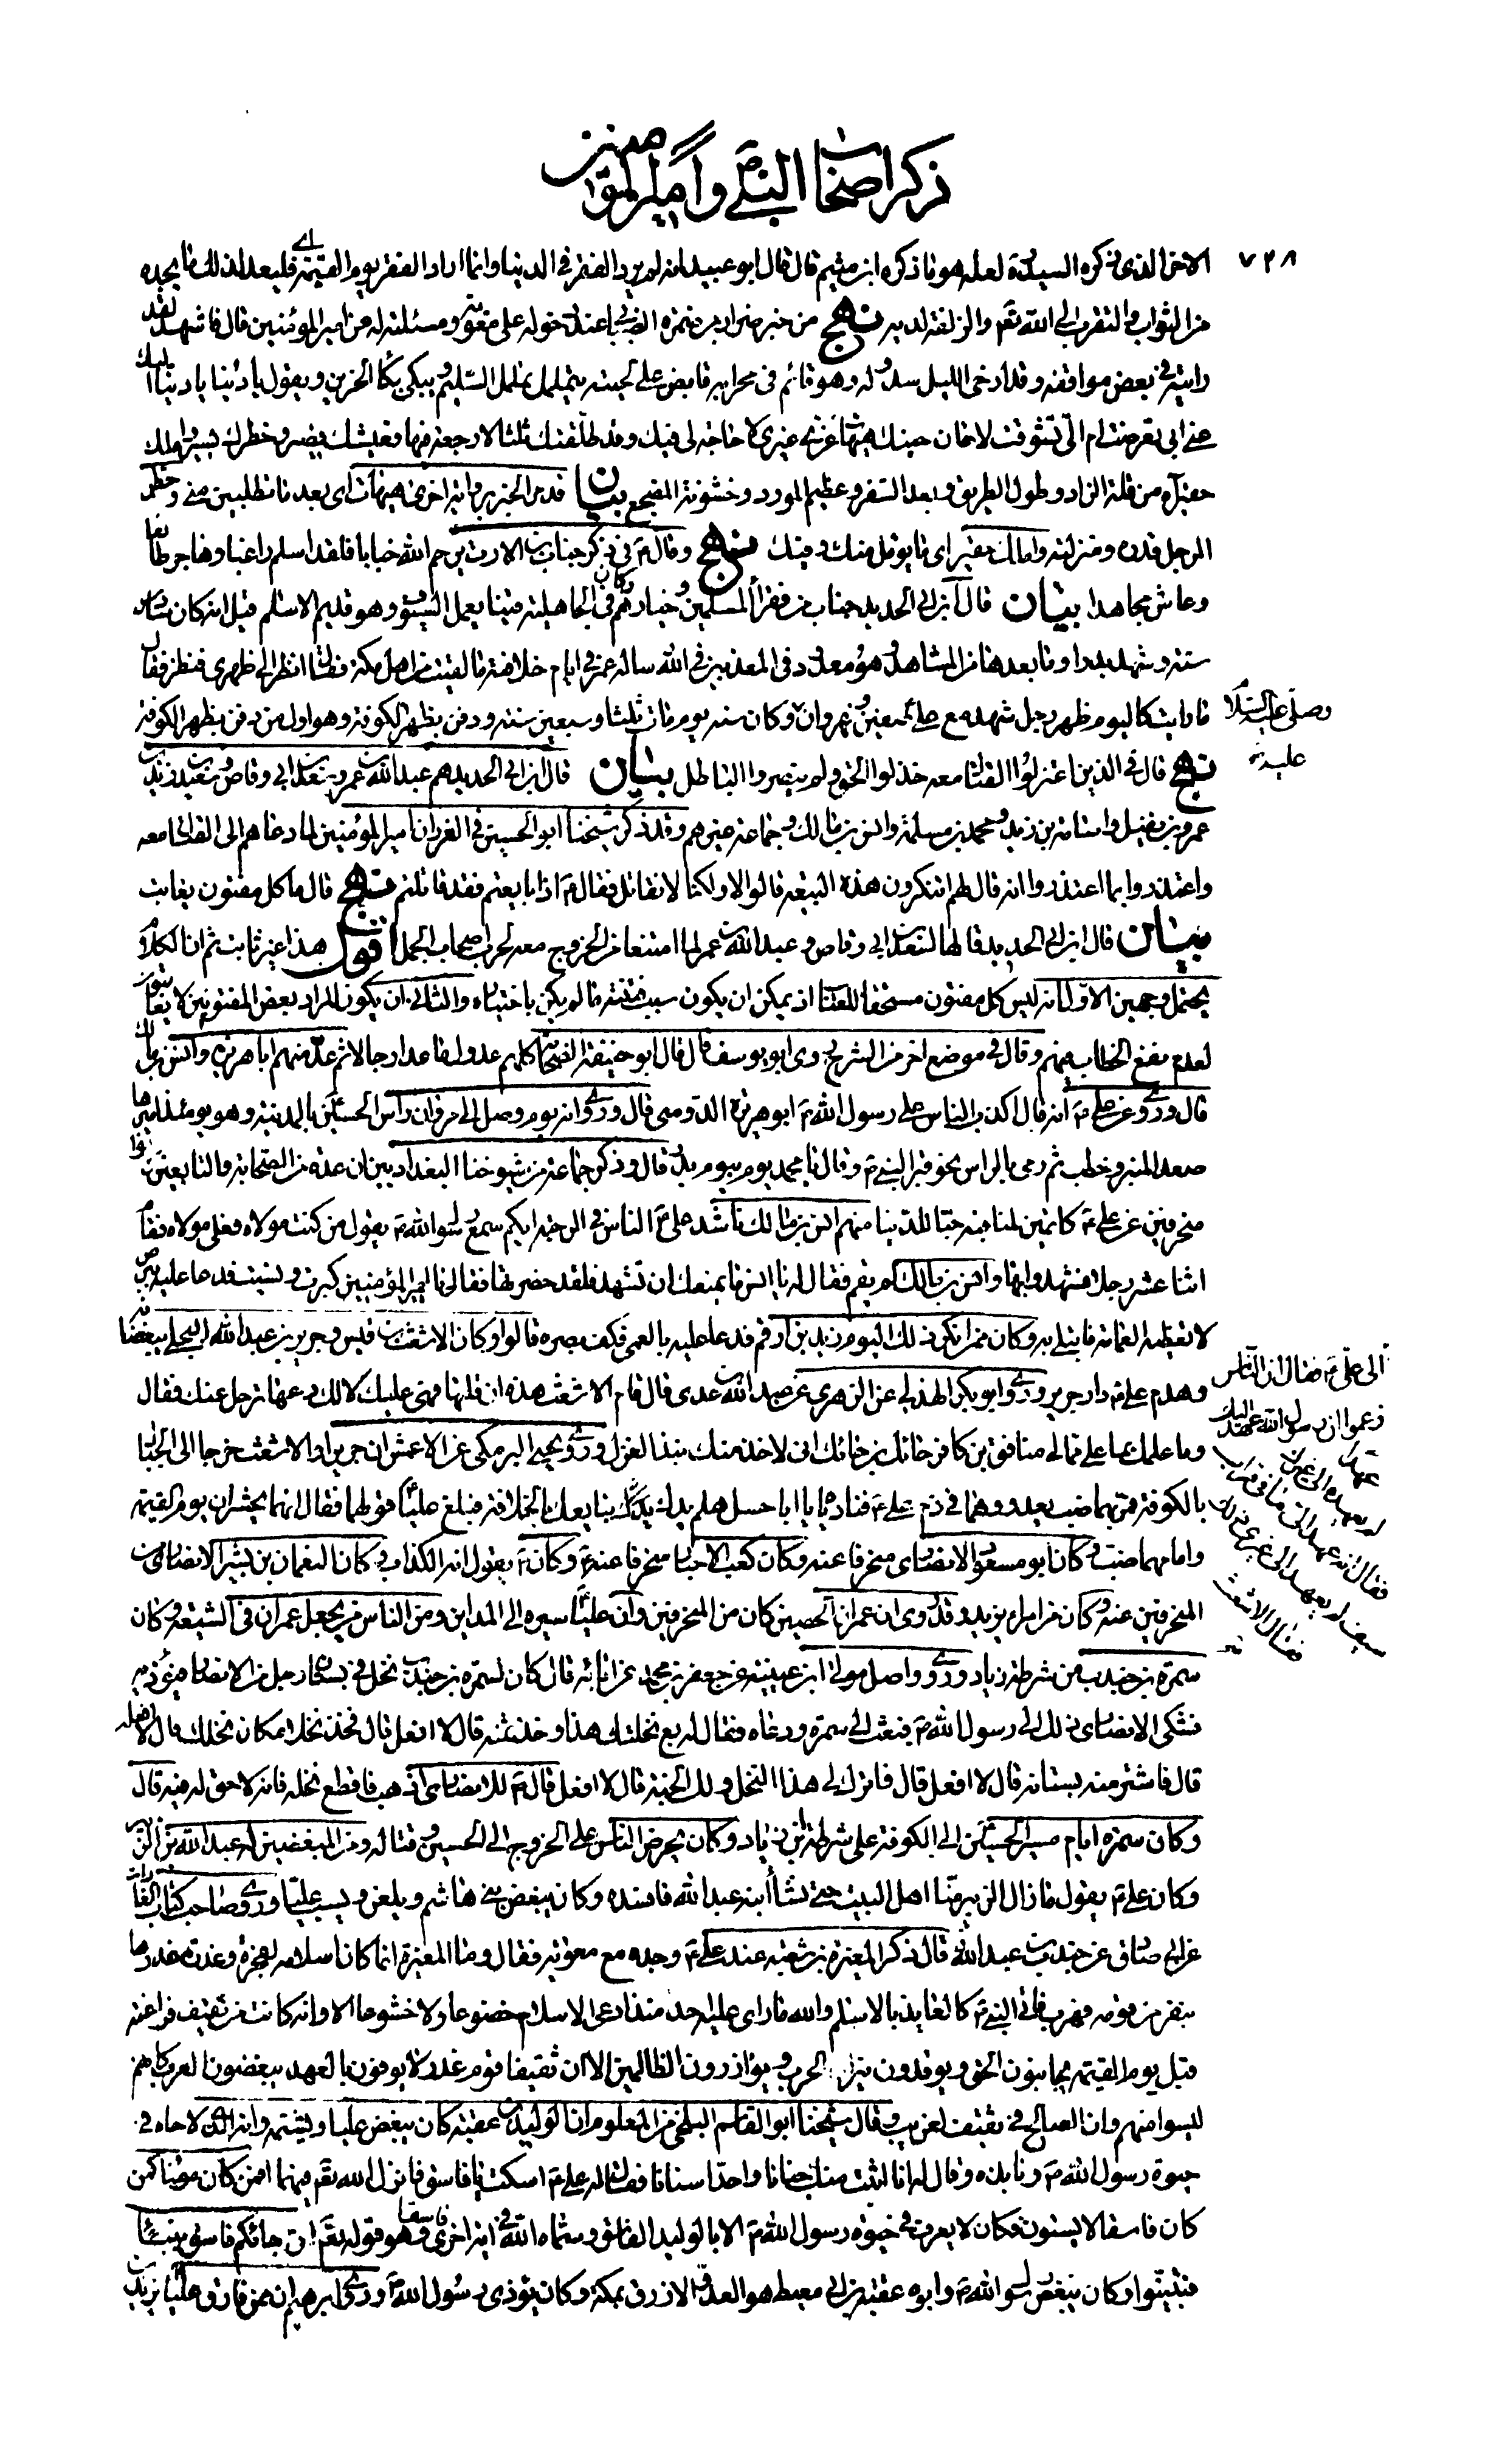 ذكر اصحاب النبي وامير المؤمنين
٧٢٨
الاخر الذي ذكره السيد ره لعله هو ما ذكره ابن ميثم قال قال ابو عبيد انه لم يرد الفقر في الدنيا وانما اراد الفقر يوم القيمة اي فليعد لذلك ما يجده
من الثواب والتقرب الى الله تع والزلفة لديه نهج من خبر ضرار بن ضمرة الضبابي عند دخوله على معوية ومسئلته له عن امير المؤمنين قال فاشهد لقد
رايته في بعض مواقفه وقد ارخى الليل سدوله وهو قائم في محرابه قابض على لحيته يتململ تململ السليم ويبكي بكاء الحزين ويقول يا دنيا يا دنيا اليك
عني ابي تعرضت ام الي تشوقت لا حان حينك هيهات غري غيري لا حاجة لي فيك وقد طلقتك ثلثا لا رجعة فيها فعيشك قصير وخطرك يسير واملك
حقير آه من قلة الزاد وطول الطريق وبعد السفر وعظيم المورد وخشونة المضجع بيان قد مر الخبر برواية اخرى هيهات اي بعد ما تطلبين مني وخطر
الرجل قدره ومنزلته واملك حقير اي ما يؤمل منك وفيك نهج وقال ع في ذكر خباب بن الارت يرحم الله خبابا فلقد اسلم راغبا وهاجر طائعا
وعاش مجاهدا بيان قال ابن ابي الحديد خباب من فقراء المسلمين وخيارهم وكان في الجاهلية قينا يعمل السيوف وهو قديم الاسلام قيل انه كان سادس
ستة وشهد بدرا وما بعدها من المشاهد وهو معدود في المعذبين في الله ساله عمر في ايام خلافته ما لقيت من اهل مكة فقال انظر الى ظهري فنظر فقال
ما رايت كاليوم ظهر رجل شهد مع علي ع صفين ونهروان وكان سنه يوم مات ثلثا وسبعين سنة ودفن بظهر الكوفة وهو اول من دفن بظهر الكوفة
وصلى عليه السلام
عليه
نهج قال في الذين اعتزلوا القتال معه خذلوا الحق ولم ينصروا الباطل بيان قال ابن ابي الحديد هم عبد الله بن عمر وسعد بن ابي وقاص وسعيد بن زيد بن
عمرو بن نفيل واسامة بن زيد ومحمد بن مسلمة وانس بن مالك وجماعة غيرهم وقد ذكر شيخنا ابو الحسين في الغرر ان امير المؤمنين لما دعاهم الى القتال معه
واعتذروا بما اعتذروا انه قال لهم اتنكرون هذه البيعة قالوا لا ولكنا لا نقاتل فقال ع اذا بايعتم فقد قاتلتم نهج قال ما كل مفتون يعاتب
بيان قال ابن ابي الحديد قالها لسعد بن ابي وقاص وعبد الله بن عمر لما امتنعا من الخروج معه لحرب اصحاب الجمل اقول هذا غير ثابت ثم ان الكلام
يحتمل وجهين الاول انه ليس كل مفتون مستحقا للعتاب اذ يمكن ان يكون سبب فتنته ما لم يكن باختياره والثاني ان يكون المراد بعض المفتونين لا يعاتبون
لعدم نفع الخطاب فيهم وقال في موضع اخر من الشرح روى ابو يوسف قال قال ابو حنيفة الصحابة كلهم عدول ما عدا رجالا ثم عد منهم ابا هريرة وانس بن مالك
قال وروي عن علي ع انه قال اكذب الناس على رسول الله ص ابو هريرة الدوسي قال وروي انه يوم وصل الى مروان راس الحسين ع بالمدينة وهو يومئذ اميرها
صعد المنبر وخطب ثم رمى بالراس نحو قبر النبي ص وقال يا محمد يوم بيوم بدر قال وذكر جماعة من شيوخنا البغداديين ان عدة من الصحابة والتابعين كانوا
منحرفين عن علي ع كاتمين لمناقبه حبا للدنيا منهم انس بن مالك ناشد علي ع الناس في الرحبة ايكم سمع رسول الله ص يقول من كنت مولاه فعلي مولاه فقام
اثنا عشر رجلا فشهدوا بها وانس بن مالك لم يقم فقال له يا انس ما يمنعك ان تشهد فلقد حضرتها فقال يا امير المؤمنين كبرت ونسيت فدعا عليه ببرص
لا تغطيه العمامة فابتلي به وكان ممن انكر ذلك اليوم زيد بن ارقم فدعا عليه بالعمى فكف بصره قالوا وكان الاشعث بن قيس وجرير بن عبد الله البجلي يبغضانه
وهدم علي ع دار جرير وروى ابو بكر الهذلي عن الزهري عن عبيد الله بن عدي قال قام الاشعث
الى علي ع فقال ان الناس
زعموا ان رسول الله عهد اليك
عهدا لم يعهده الى غيرك
فقال انه عهد الي ما في قراب
سيفي لم يعهد الي غير ذلك
فقال الاشعث
هذه ان قلتها فهي عليك لا لك دعها ترحل عنك فقال
وما علمك بما علي مما لي منافق بن كافر حائك بن حائك اني لاجد منك بنة الغزل وروى يحيى البرمكي عن الاعمش ان جريرا والاشعث خرجا الى الجبانة
بالكوفة فمر بهما ضب يعدو وهما في ذم علي ع فناديا يا ابا حسل هلم يدك نبايعك بالخلافة فبلغ عليا ع قولهما فقال انهما يحشران يوم القيمة
وامامهما ضب وكان ابو مسعود الانصاري منحرفا عنه وكان كعب الاحبار منحرفا عنه ع وكان ع يقول انه الكذاب وكان النعمان بن بشير الانصاري من
المنحرفين عنه وكان من امراء يزيد وقد روي ان عمران بن الحصين كان من المنحرفين وان عليا سيره الى المداين ومن الناس من يجعل عمران في الشيعة وكان
سمرة بن جندب من شرطة زياد وروى واصل مولى ابن عيينة عن جعفر بن محمد عن ابائه قال كان لسمرة بن جندب نخل في بستان رجل من الانصار فيؤذيه
فشكى الانصاري ذلك الى رسول الله ص فبعث الى سمرة ودعاه فقال له بع نخلتك هذا وخذ ثمنه قال لا افعل قال فخذ نخلا مكان نخلك قال لا افعل
قال فاشتر منه بستانه قال لا افعل قال فاترك لي هذا النخل ولك الجنة قال لا افعل قال ص للانصاري اذهب فاقطع نخله فانه لا حق له فيه قال
وكان سمرة ايام مسير الحسين الى الكوفة على شرطة ابن زياد وكان يحرض الناس على الخروج الى الحسين وقتاله ومن المبغضين له عبد الله بن الزبير
وكان علي ع يقول ما زال الزبير منا اهل البيت حتى نشأ ابنه عبد الله فافسده وكان يبغض بني هاشم ويلعن ويسب عليا وروى صاحب كتاب الغارات
عن ابي صادق عن جندب بن عبد الله قال ذكر المغيرة بن شعبة عند علي ع وجده مع معوية فقال وما المغيرة انما كان اسلامه لفجرة وغدرة غدرها
بنفر من قومه فهرب فاتى النبي ص كالعايذ بالاسلام والله ما راى عليه احد منذ ادعى الاسلام خضوعا ولا خشوعا الا وانه كائنة من ثقيف فراعنة
قبل يوم القيمة يجانبون الحق ويوقدون نيران الحرب ويوازرون الظالمين الا ان ثقيفا قوم غدر لا يوفون بالعهد يبغضون العرب كانهم
ليسوا منهم وان الصالح في ثقيف لغريب وقال شيخنا ابو القاسم البلخي من المعلوم ان الوليد بن عقبة كان يبغض عليا ويشتمه وانه الذي لاحاه في
حيوة رسول الله ص ونابذه وقال له انا اثبت منك جنانا واحد سنانا فقال له علي ع اسكت يا فاسق فانزل الله تع فيهما افمن كان مؤمنا كمن
كان فاسقا لا يستون فكان لا يعرف في حيوة رسول الله ص الا بالوليد الفاسق وسماه الله في اية اخرى فاسقا وهو قوله تع ان جائكم فاسق بنبأ
فتبينوا وكان يبغض رسول الله ص وابوه عقبة بن ابي معيط هو العدو الازرق بمكة وكان يؤذي رسول الله ص وروى ابرهيم ان ممن فارق عليا يزيد بن